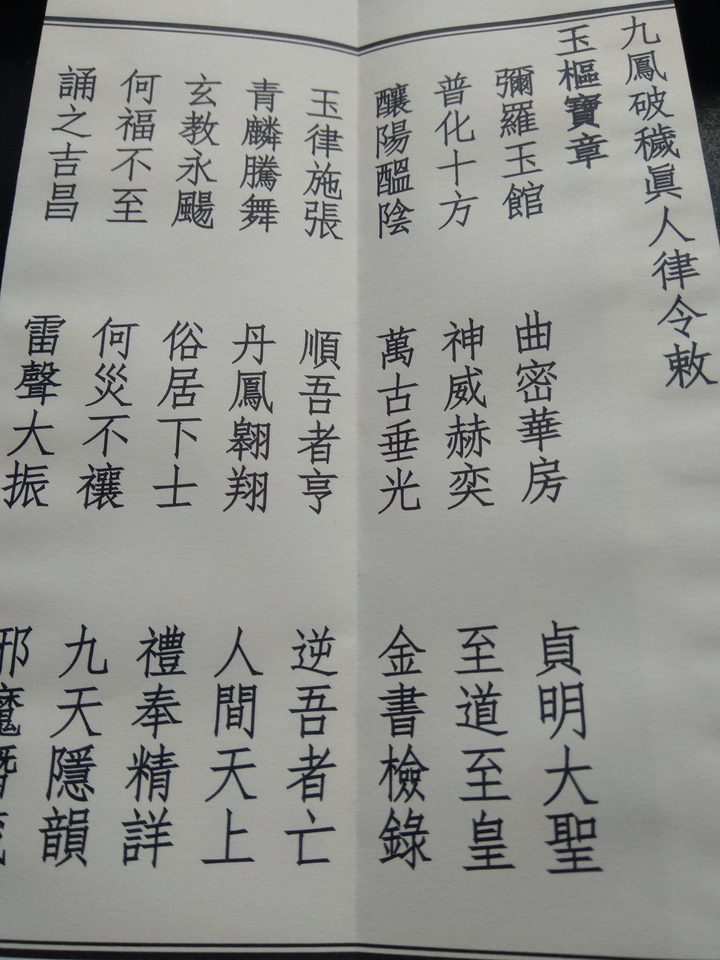 九鳳破穢眞人律令敕
玉樞寶章
彌羅玉館 曲密華房 貞明大聖
普化十方 神威赫奕 至道至皇
釀陽醞陰 萬古垂光 金書檢錄
玉律施張 順吾者亨 逆吾者亡
青麟騰舞 丹鳳翱翔 人間天上
玄教永颺 俗居下士 禮奉精詳
何福不至 何災不禳 九天隱韻
誦之吉昌 雷聲大振 邪魔